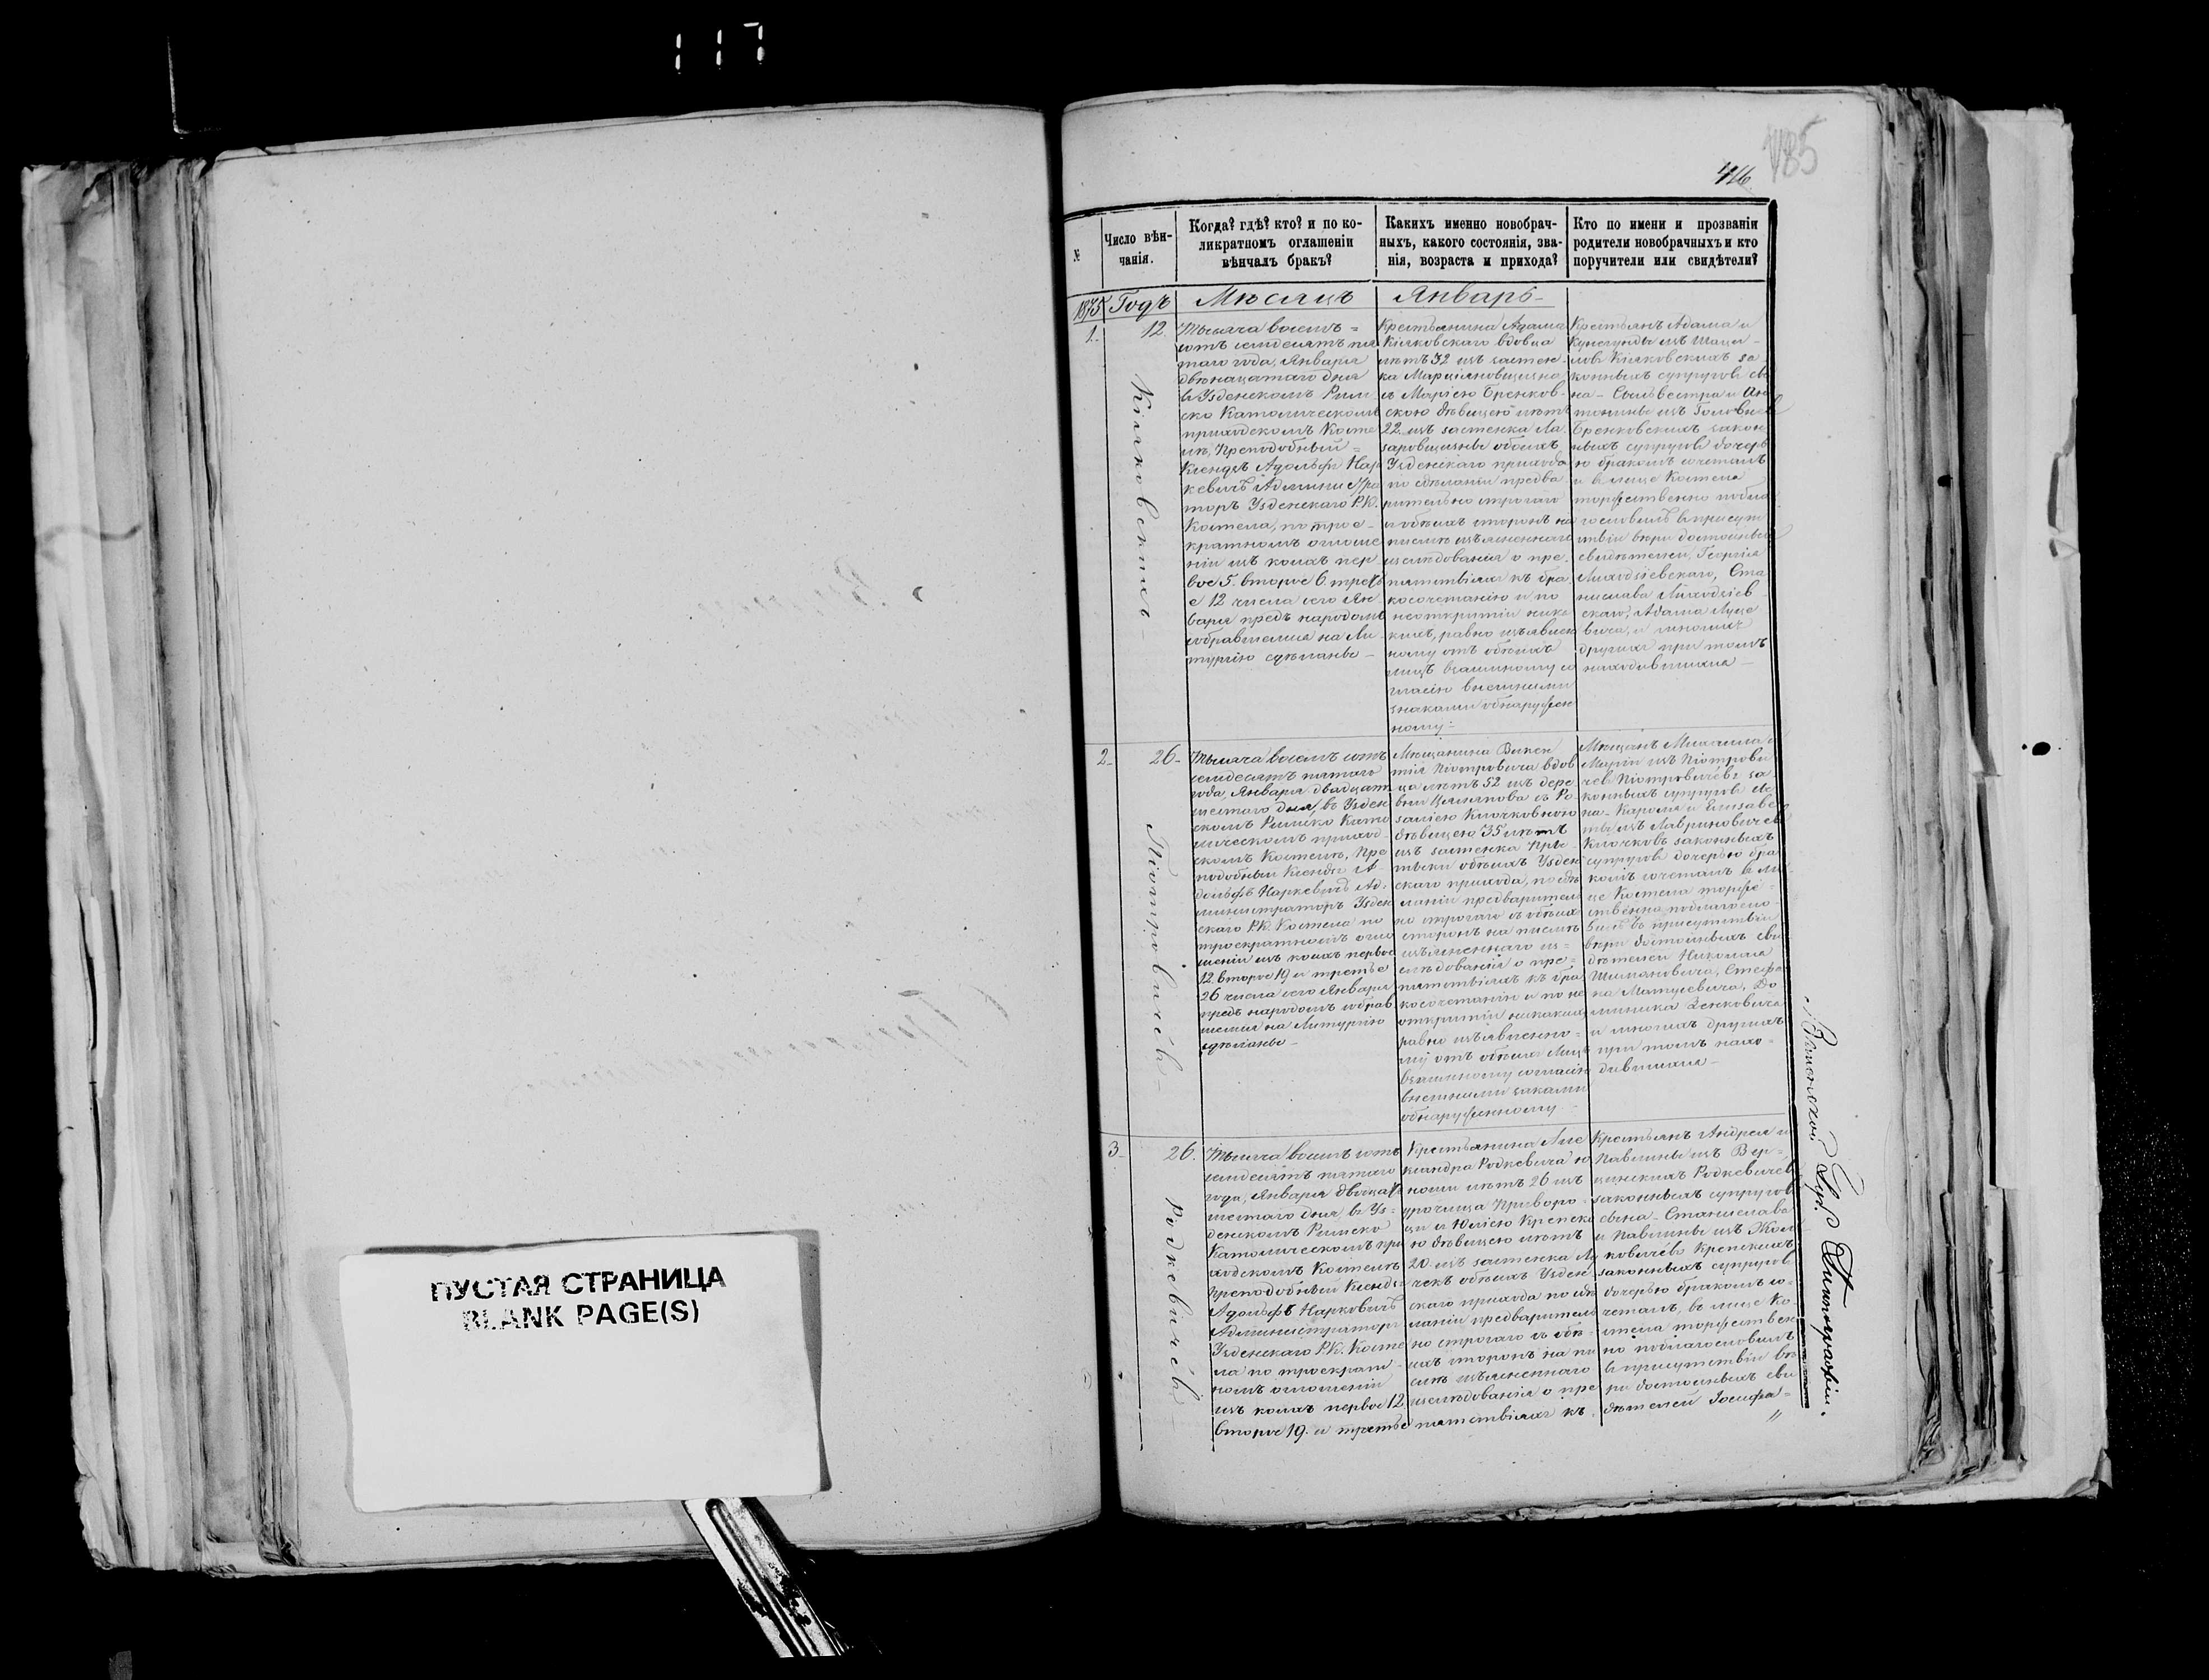 117
ПУСТАЯ СТРАНИЦА
BLANK PAGE(S)
185
№
Число вѣн-
чанія.
Когда? гдѣ? кто? и по ко-
ликратномъ оглашеніи
вѣнчалъ бракъ?
Какихъ именно новобрач-
ныхъ, какого состоянія, зва-
нія, возраста и прихода?
Кто по имени и прозванію
родители новобрачныхъ и кто
поручители или свидѣтели?
1875 Годъ Мѣсяцъ Январь
1.
12.
Тысяча восемь=
сотъ семдесятъ пя
таго года, Января
двѣнацатаго дня
въ Узденскомъ Рим
ско Католическомъ
приходскомъ Косте
лѣ, Преподобный=
Ксендзъ Адольфъ Нар
кевичъ Администра
торъ Узденскаго Р.К.
Костела, по трое-
кратномъ оглаше
ніи изъ коихъ пер
вое 5. второе 6 трет
е 12 числа сего Ян
варя предъ народомъ
собравшемся на Ли
тургію сдѣланы-
Крестьянина Адама
вдовца
лѣтъ 32 изъ застен-
ка Марціяновщизна
съ Маріею Бренков-
скою дѣвицею лѣтъ
22 изъ застенка Ла
заровщизны обоихъ
Узденскаго прихода
по сдѣланіи предва
рительно строгаго
съ обѣихъ сторонъ на
письмѣ изъясненнаго
изслѣдованія о пре
пятствіяхъ къ бра
косочетанію и по
неоткрытіи ника
кихъ, равно изъявлен
ному отъ обѣихъ
лицъ взаимному со
гласію внешними
знаками обнаружен
ному:
Крестьянъ Адама и
Кунегунды изъ
за
конныхъ супруговъ сы
на- Сильвестра и Ан
тонины изъ
Бренковскихъ закон
ныхъ супруговъ дочерь
ю бракомъ сочеталъ
и въ лице Костела
торжественно побла
гословилъ въ присут
ствіи вѣри достойныхъ
свидѣтелей, Георгія
Ста
нислава
скаго, Адама Луце
вича, и многихъ
другихъ при томъ
находившихся-
2.
26.
Піотровичевъ-
Тысяча восемъ сотъ
семдесятъ пятаго
года, Января двадцат
шестаго дня, въ Узден
скомъ Римско Като
лическомъ приход-
скомъ Костелѣ, Пре
подобный Ксендзъ А-
дольфъ Наркевичъ Ад-
министраторъ Узден
скаго Р.К. Костела по
троекратномъ огла
шеніи изъ коихъ первое
12. второе 19 и третье
26 числа сего Января
предъ народомъ собрав
шемся на Литургію
сдѣланы-
Мещанина Викен
тія Піотровича вдов
ца лѣтъ 52 изъ дере
вни съ Ро
заліею Клочковною
дѣвицею 35 лѣтъ
изъ застенка
обѣихъ Узден
скаго прихода, по сдѣ
ланіи предварител
но строгаго съ обѣихъ
сторонъ на письмѣ
изъясненнаго из=
слѣдованія о пре=
пятствіяхъ къ бра
косочетанію и по не
открытіи никакихъ
равно изъявленно=
му отъ обѣихъ Лицъ
взаимному согласію
внешними знаками
обнаруженному
Мещанъ Михаила и
Маріи изъ Піотрови
чевъ Піотровичевъ за
конныхъ супруговъ сы
на- Кароля и Елизаве
ты изъ Лавриновичевъ
Клочковъ законныхъ
супруговъ дочерью бра
комъ сочеталъ въ ли
це Костела торже=
ственно поблагосло-
вилъ въ присутствіи
вѣри достойныхъ сви
дѣтелей Николая
Шимановича, Стефа
на Матусевича, До
миника Зенковича
и многихъ другихъ
при томъ нахо=
дившихся-
3.
26.
Родкевичевъ
Тысяча восемъ сотъ
семдесятъ пятаго
года, Января двадцат
шестаго дня, въ Уз=
денскомъ Римско
Католическомъ при
ходскомъ Костелѣ
преподобный Ксендз
Адольфъ Наркевичъ
Администраторъ
Узденскаго Р.К. Косте
ла по троекрат
номъ оглашеніи
изъ коихъ первое 12
второе 19. и третье
Крестьянина Але
ксандра Родкевича ю
ноши лѣтъ 26 изъ
урочища Приворо
съ Юліею
ю дѣвицею лѣтъ
20. изъ застенка
обѣихъ Узден
скаго прихода по сдѣ
ланіи предварител
но строгаго съ обѣ=
ихъ сторонъ на пи
смѣ изъясненнаго
изслѣдованія о пре
пятствіяхъ къ
Крестьянъ Андрея и
Павлины изъ
Родкевичевъ
законныхъ супруговъ
сына- Станислава
и Павлины изъ
законныхъ супруговъ
дочерью бракомъ со-
четалъ, въ лице Ко-
стела торжествен
но поблагословилъ
въ присутствіи вѣ
ри достойныхъ сви
дѣтелей Іосифа=
Типографіи.